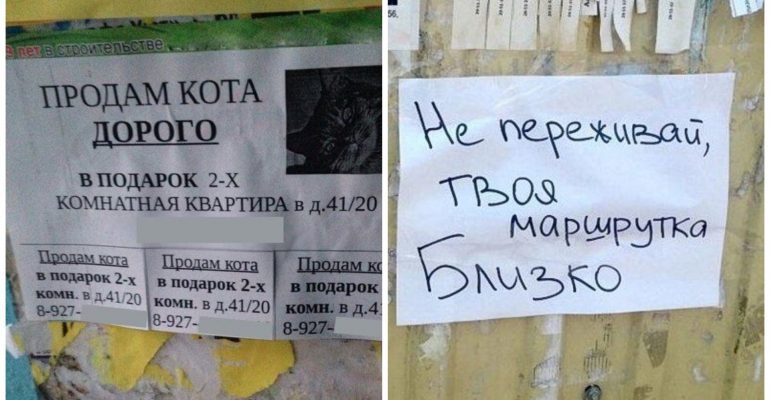 лет в строительстве
ПРОДАМ КОТА
ДОРОГО
В ПОДАРОК 2-Х
КОМНАТНАЯ КВАРТИРА в д.41/20
Продам кота
в подарок 2-х
комн. в д.41/20
8-927-
Продам кота
в подарок 2-х
комн. в д.41/20
8-927-
Продам к
в подарок
комн. в д.4
8-927-
Не переживай,
твоя
маршрутка
Близко